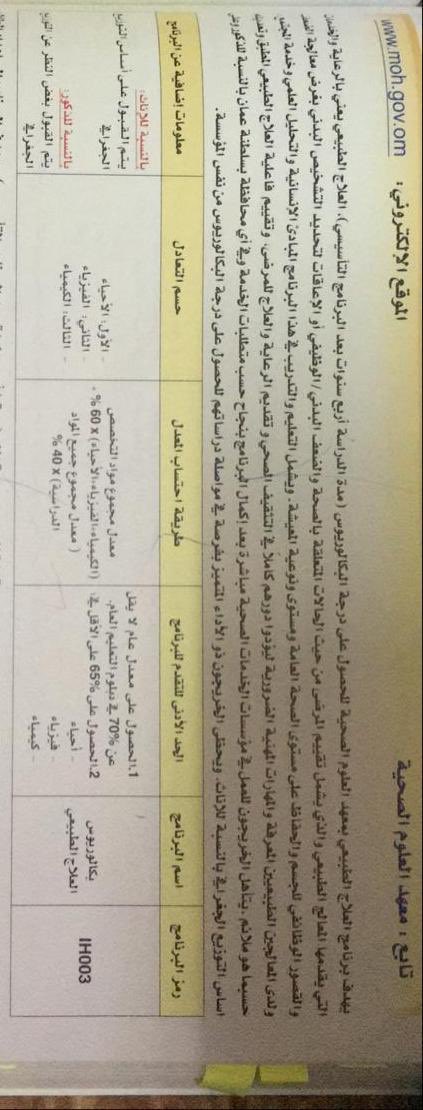 تابع : معهد العلوم الصحية
الموقع الالكتروني: www.moh.gov.om
يهدف برنامج العلاج الطبيعي بمعهد العلوم الصحية للحصول على درجة البكالوريوس (مدة الدراسة أربع سنوات بعد البرنامج التأسيسي)، العلاج الطبيعي يعني بالرعاية والخدمات
التي يقدمها المعالج الطبيعي والذي يشمل تقييم المرضى من حيث الحالات المتعلقة بالصحة والضعف البدني/الوظيفي أو الإعاقات لتحديد التشخيص البدني بغرض معالجة الضعف
والقصور الوظائفي للجسم والحفاظ على مستوى الصحة العامة ومستوى ونوعية المعيشة. ويشمل التعليم والتدريب في هذا البرنامج المبادئ الإنسانية والتحليل العلمي وخدمة المجتمع
ولدى المعالجين الطبيعيين المعرفة والمهارات المهنية الضرورية ليؤدوا دورهم كاملا في التثقيف الصحي و تقديم الرعاية والعلاج للمرضى، وتقييم فاعلية العلاج الطبيعي المطبق وتعديله
حسبما هو ملائم. يتأهل الخريجون للعمل في مؤسسات الخدمات الصحية مباشرة بعد إكمال البرنامج بنجاح حسب متطلبات الخدمة وفي أي محافظة بسلطنة عمان بالنسبة للذكور وعلى
اساس التوزيع الجغرافي بالنسبة للإناث. ويحظى الخريجون ذو الأداء المتميز بفرصة في مواصلة دراساتهم للحصول على درجة البكالوريوس من نفس المؤسسة.
رمز البرنامج
اسم البرنامج
الحد الأدنى للتقدم للبرنامج
طريقة احتساب المعدل
حسم التعادل
معلومات إضافية عن البرنامج
IH003
بكالوريوس
العلاج الطبيعي
1.الحصول على معدل عام لا يقل
عن 70% في دبلوم التعليم العام.
2.الحصول على 65% على الأقل في:
- أحياء
- فيزياء
- كيمياء
معدل مجموع مواد التخصص
(الكيمياء،الفيزياء،الأحياء) x 60 %
( معدل مجموع جميع المواد
الدراسية) x 40 %
- الأول: الأحياء
- الثاني: الفيزياء
- الثالث: الكيمياء
بالنسبة للإناث:
يتم القبول على أساس التوزيع
الجغرافي
بالنسبة للذكور:
يتم القبول بغض النظر عن التوزيع
الجغرافي